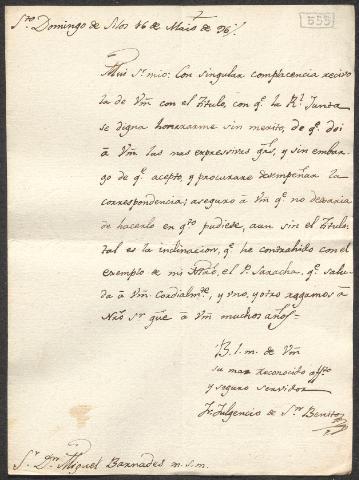 555
Sto. Domingo de Silos 16 de Maio de 96.
Mui Sr. mio: Con singular complacencia recivo
la de Vm con el Titulo, con q.e la Rl. Junta
se digna honrrarme sin merito, de q.e doi
â Vm las mas expressives gs., y sin embar-
go de q.e acepto, y procurare desempeñar la
correspondencia; aseguro â Vm q.e no dexaria
de hacerlo en q.to pudiese, aun sin el Titulo:
tal es la inclinacion, q.e he contrahido con el
exemplo de mi Mro. el P. Saracha, q.e salu-
da â Vm. Cordialm.te, y uno, y otro rogamos â
Nro Sr gue. â Vm muchos años.
B. l. m. de Vm
su mas reconocido affto
y seguro servidor
Fr. Fulgencio de Sn. Benito
Sr. Dn. Miguel Barnades m. s. m.